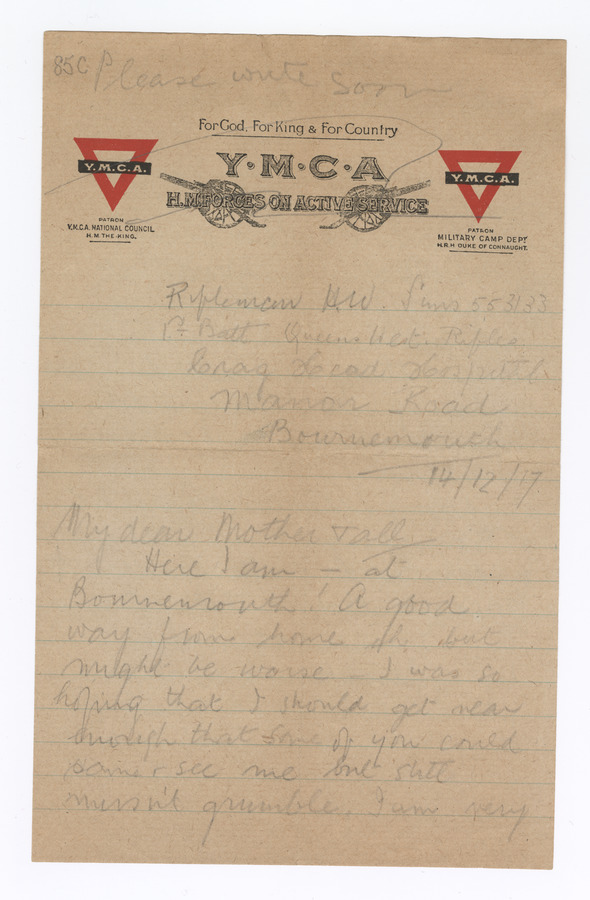 85C Please write soon
For God, For King & For Country
Y·M·C·A
H.M. FORCES ON ACTIVE SERVICE
Y.M.C.A.
PATRON
Y.M.C.A. NATIONAL COUNCIL
H.M. THE KING.
Y.M.C.A.
PATRON
MILITARY CAMP DEPT
H.R.H DUKE OF CONNAUGHT.
Rifleman H.W. 553133
1st Batt Queens West. Rifles
Crag Head Hospital
Manor Road
Bournemouth
14/12/17
My dear Mother & all
Here I am – at
Bournemouth! A good
way from home eh, but
might be worse – I was so
hoping that I should get near
enough that some of you could
come & see me but still
mussn't grumble. I am very